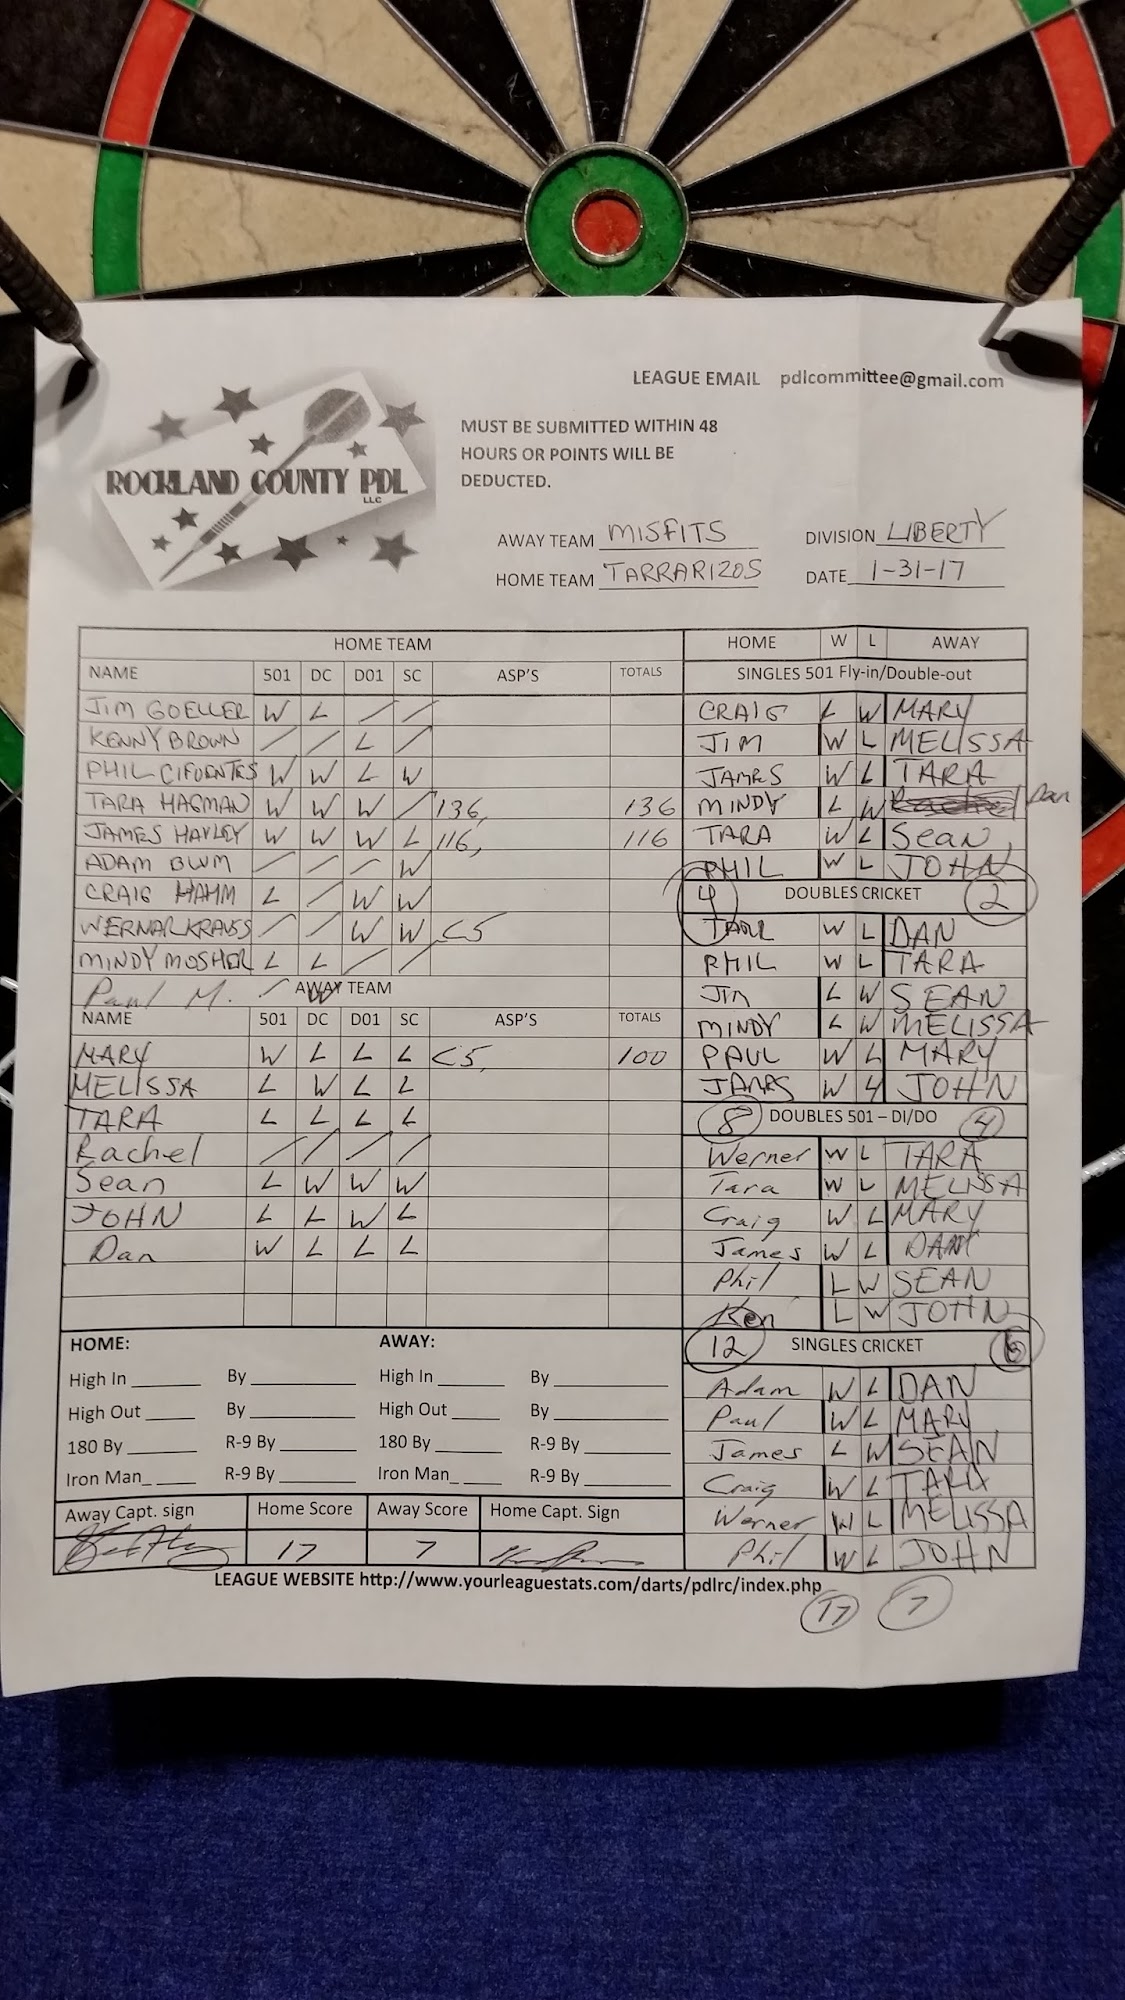 LEAGUE EMAIL pdlcommittee@gmail.com
ROCKLAND COUNTY PDL
LLC
MUST BE SUBMITTED WITHIN 48
HOURS OR POINTS WILL BE
DEDUCTED.
AWAY TEAM MISFITS
DIVISION LIBERTY
HOME TEAM TARRARIZOS
DATE 1-31-17
HOME TEAM
NAME 501 DC D01 SC ASP'S TOTALS
JIM GOELLER W L / /
KENNY BROWN / / L /
PHIL CIFUENTES W W L W
TARA HAGMAN W W W / 136, 136
JAMES HAYLEY W W W L 116, 116
ADAM BWM / / / W
CRAIG HAMM L / W W
WERNAR KRAUSS / / W W C5
MINDY MOSHER L L / /
Paul M. / W
AWAY TEAM
NAME 501 DC D01 SC ASP'S TOTALS
MARY W L L L C5, 100
MELISSA L W L L
TARA L L L L
Rachel / / / /
Sean L W W W
JOHN L L W L
Dan W L L L
HOME: AWAY:
High In By High In By
High Out By High Out By
180 By R-9 By 180 By R-9 By
Iron Man_ R-9 By Iron Man_ R-9 By
Away Capt. sign Home Score Away Score Home Capt. Sign
17 7
HOME W L AWAY
SINGLES 501 Fly-in/Double-out
CRAIG L W MARY
JIM W L MELISSA
JAMES W L TARA
MINDY L W Rachel Dan
TARA W L Sean
PHIL W L JOHN
4 DOUBLES CRICKET 2
W L DAN
PHIL W L TARA
JIM L W SEAN
MINDY L W MELISSA
PAUL W L MARY
JAMES W L JOHN
8 DOUBLES 501 – DI/DO 4
Werner W L TARA
Tara W L MELISSA
Craig W L MARY
James W L DAN
Phil L W SEAN
Ken L W JOHN
12 SINGLES CRICKET 6
Adam W L DAN
Paul W L MARY
James L W SEAN
Craig W L TARA
Werner W L MELISSA
Phil W L JOHN
LEAGUE WEBSITE http://www.yourleaguestats.com/darts/pdlrc/index.php
17 7